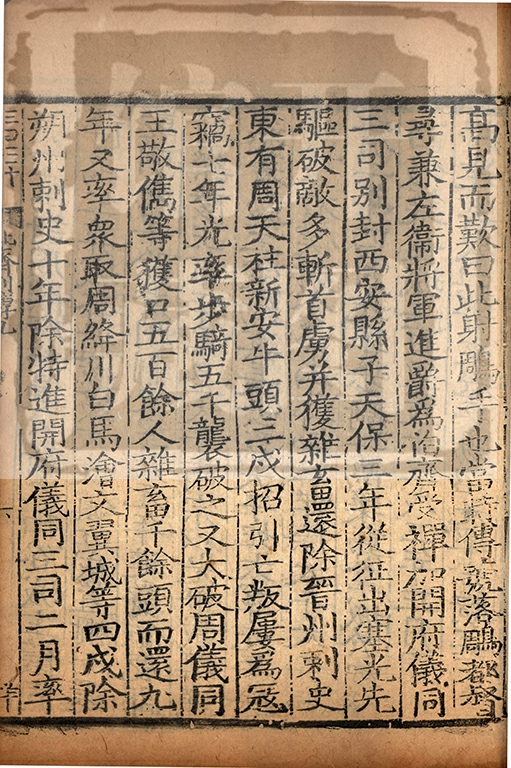 高見而歎曰此射鵰手也當時傳號落鵰都督
尋兼左衞將軍進爵爲伯齊受禪加開府儀同
三司別封西安縣子天保三年從征出塞光先
驅破敵多斬首虜并獲雜畜還除晉州刺史
東有周天柱新安牛頭三戍招引亡叛屢爲冦
竊七年光率步騎五千襲破之又大破周儀同
王敬儁等獲口五百餘人雜畜千餘頭而還九
年又率衆取周絳川白馬澮交翼城等四戍除
朔州刺史十年除特進開府儀同三司二月率